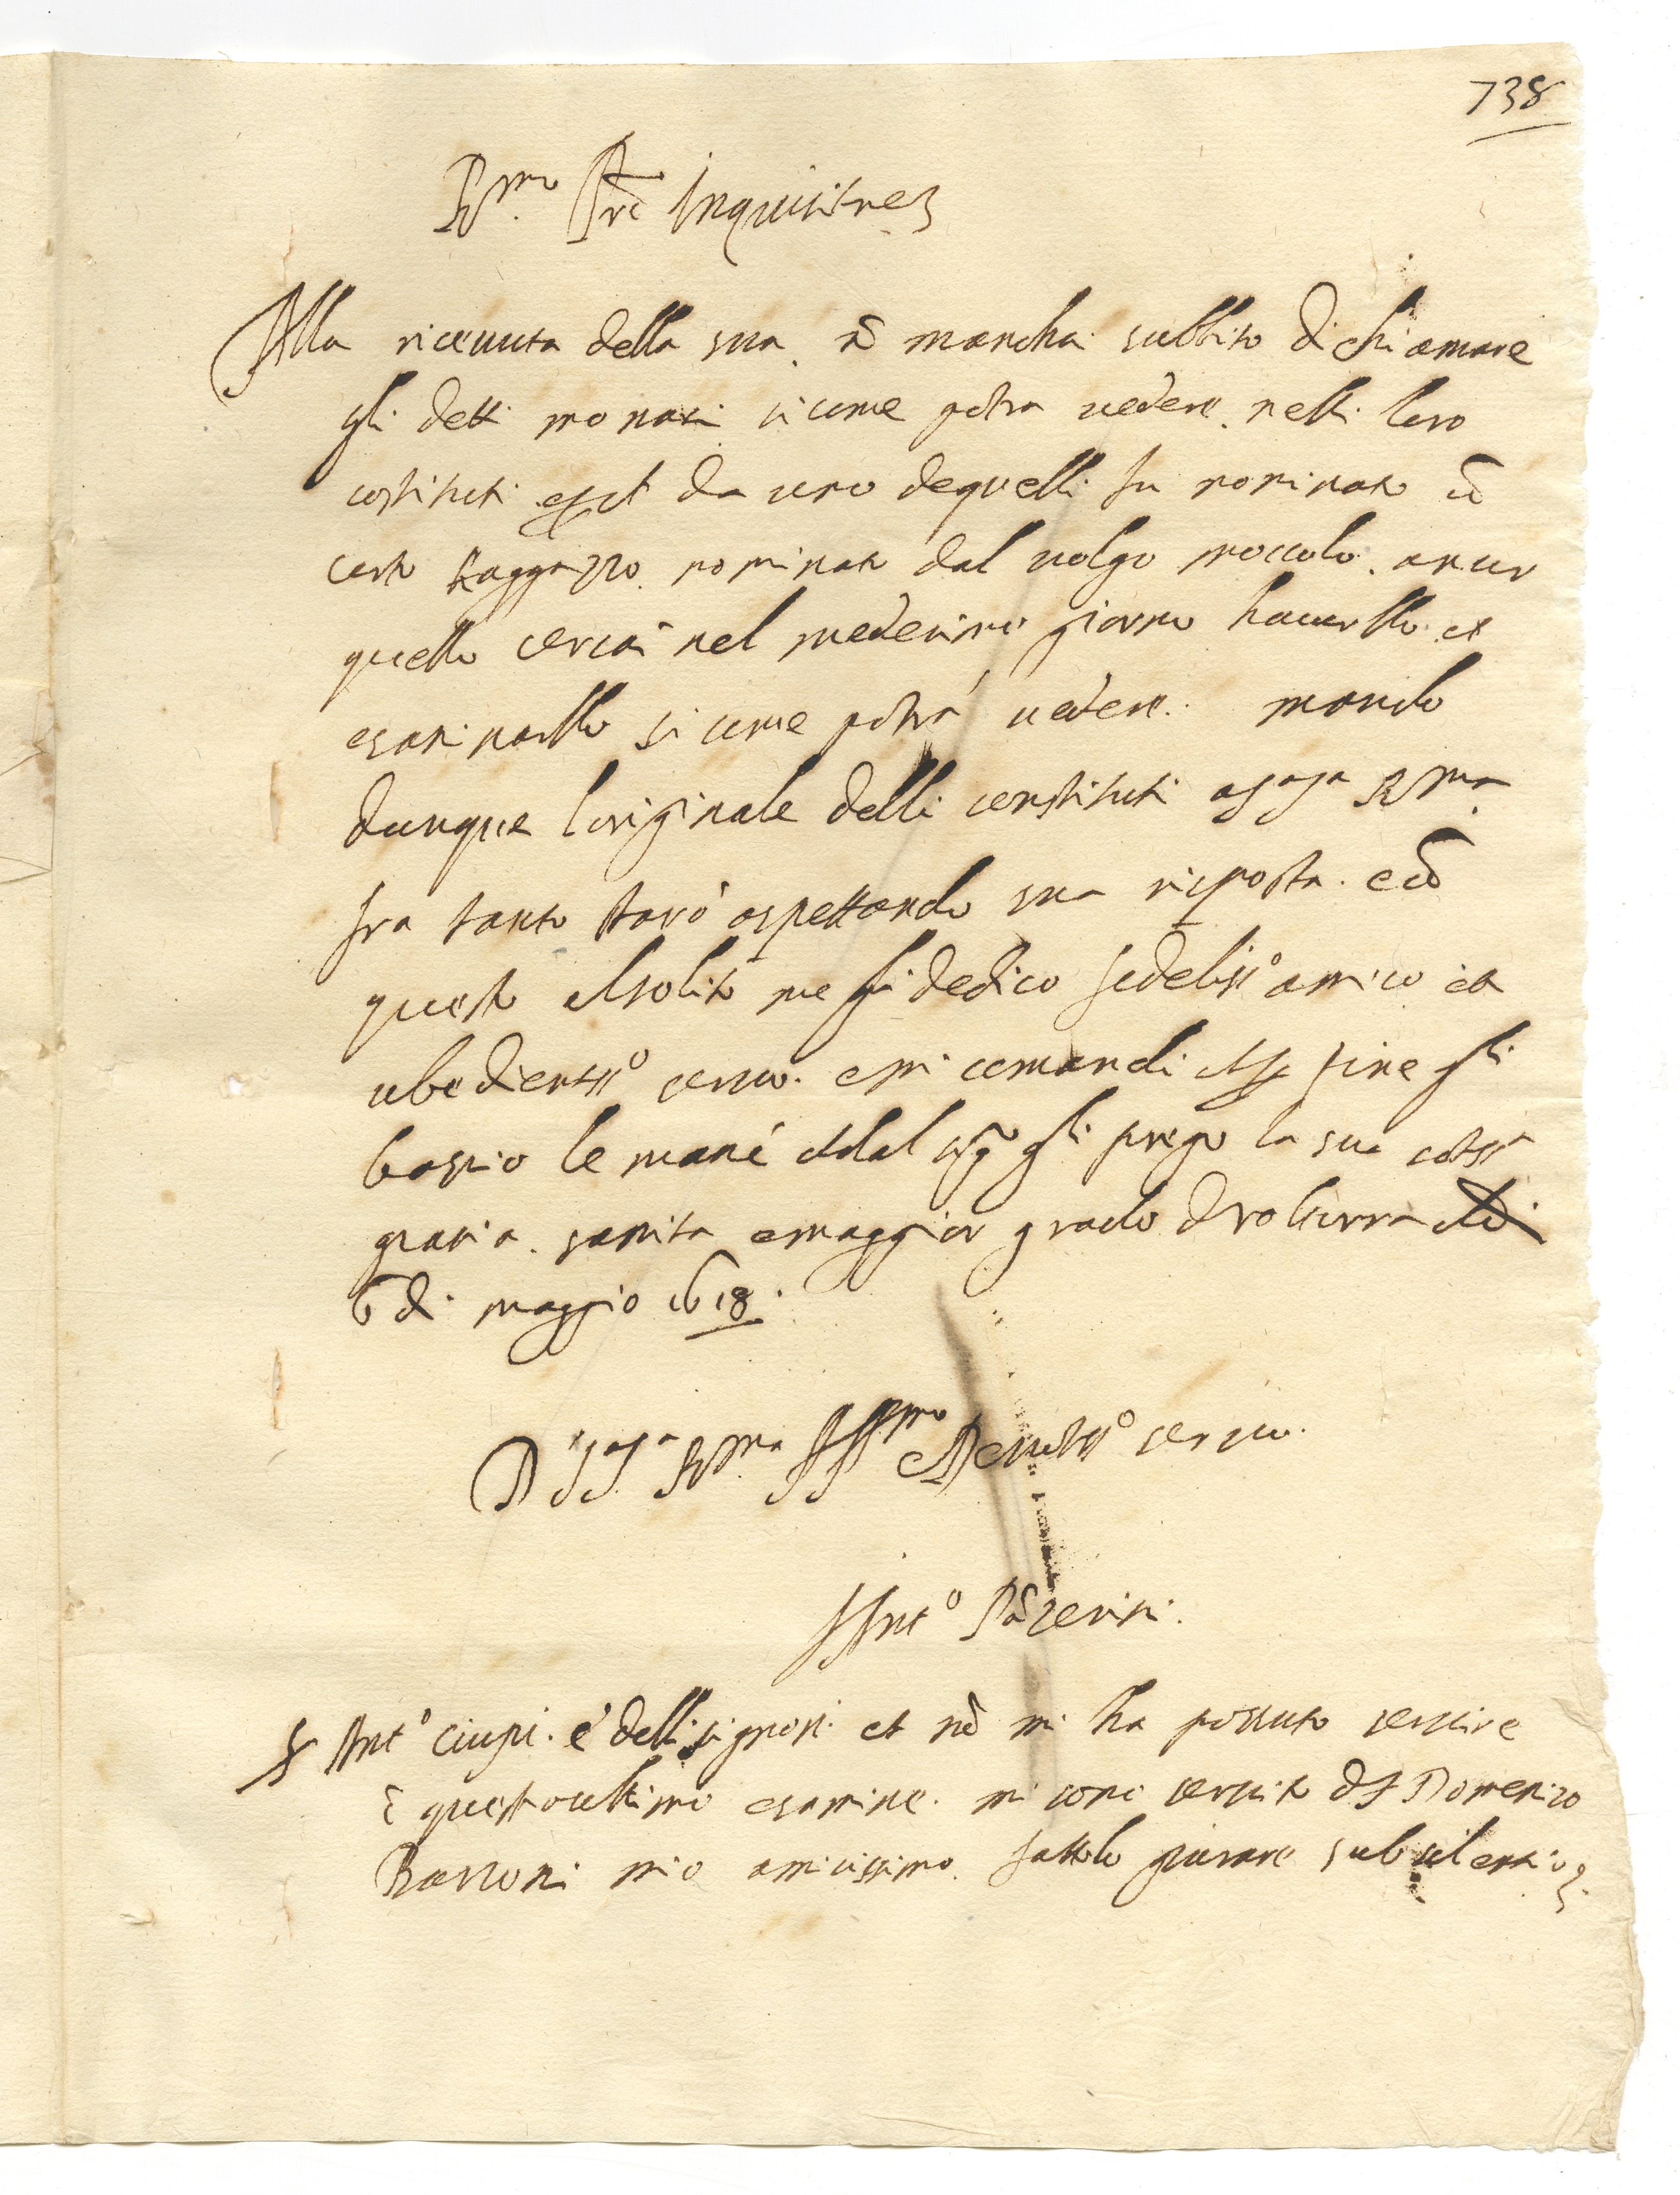 738
R.mo Pre Inquisitore
Alla riceuuta della sua nõ manchai subbito di chiamare
gli detti monaci si come potra uedere nelli loro
costituti et da uno dequelli fu nominato ũ
certo Raggazzo nominato dal uolgo moccolo. ancor
quello cercai nel medesimo giorno hauerllo et
esaminarllo si come potrà uedere. mando
dunque loriginale delli constituti a R.ma
fra tanto starò aspettando sua risposta. e cõ
questo al solito me gli dedico fedeliss.o amico et
ubedientiss.o seruo. e mi comandi al fine gli
bascio le mani et dal sig.r gli prego la sua
gratia. sanita e maggior grado di uolterra
6 di maggio 1618.
D R.ma Aff.mo e Deuotiss.o seruo.
Ant.o
Ant.o ciupi. è delli signori et nõ mi ha possuto seruire
ĩ questo ultimo esamine. mi sono seruito di Domenico
Barzoni mio amicissimo. fattolo giurare sub silentio